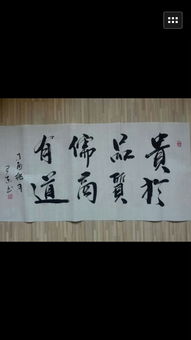 貴於
品質
儒商
有道
丁酉